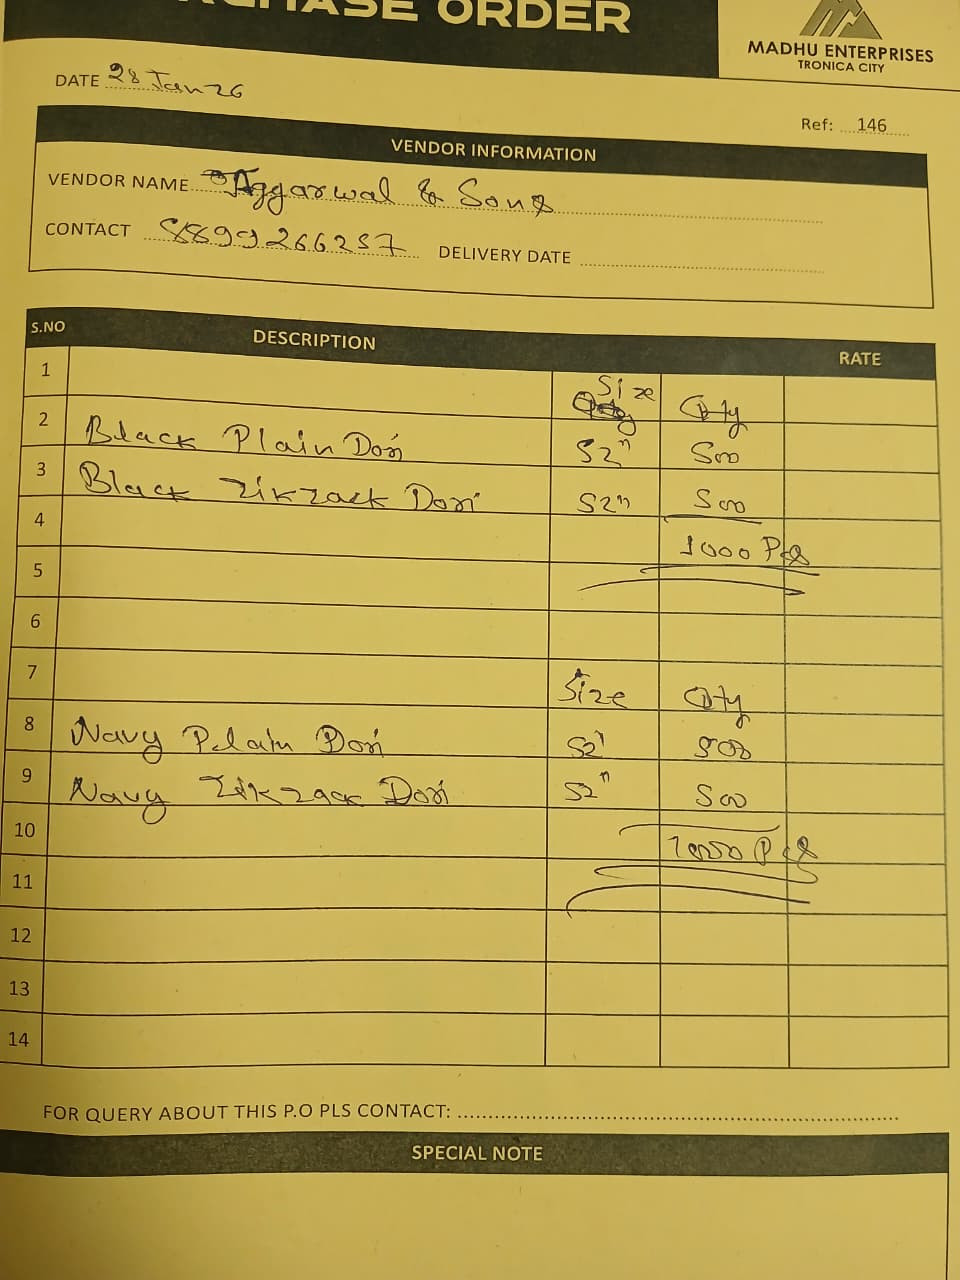 PURCHASE ORDER
MADHU ENTERPRISES
TRONICA CITY
DATE 28 Jan 26
Ref: 146
VENDOR INFORMATION
VENDOR NAME Aggarwal & Sons
CONTACT 8899266257 DELIVERY DATE
S.NO DESCRIPTION RATE
1 Size Qty
2 Black Plain Dori 52" 500
3 Black Zikzack Dori 52" 500
4 1000 Pcs
5
6
7 Size Qty
8 Navy Pelain Dori 52" 500
9 Navy Zikzack Dori 52" 500
10 1000 Pcs
11
12
13
14
FOR QUERY ABOUT THIS P.O PLS CONTACT:
SPECIAL NOTE